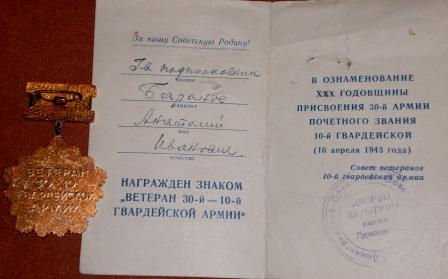 ВЕТЕРАН
30
ГВАРДЕЙСКОЙ
АРМИИ
За нашу Советскую Родину!
Гв. подполковник
фамилия
Анатолий
имя
Иванович
отчество
НАГРАЖДЕН ЗНАКОМ
„ВЕТЕРАН 30-й — 10-й
ГВАРДЕЙСКОЙ АРМИИ"
В ОЗНАМЕНОВАНИЕ
XXX ГОДОВЩИНЫ
ПРИСВОЕНИЯ 30-й АРМИИ
ПОЧЕТНОГО ЗВАНИЯ
10-й ГВАРДЕЙСКОЙ
(16 апреля 1943 года)
Совет ветеранов
10-й гвардейской армии
ДВОРЕЦ
КУЛЬТУРЫ
имени
Ленсовета